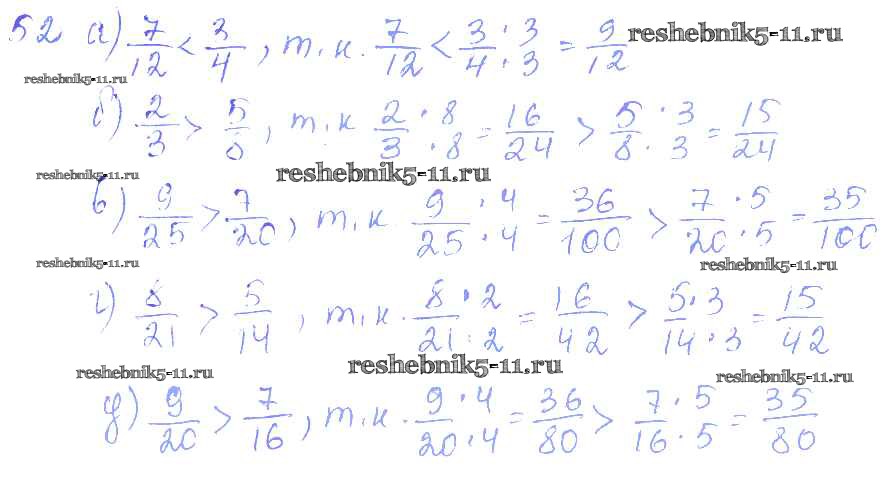 52 а) 7/12 < 3/4, т.к. 7/12 < 3·3/4·3 = 9/12
reshebnik5-11.ru
reshebnik5-11.ru
б) 2/3 > 5/8, т.к 2·8/3·8 = 16/24 > 5·3/8·3 = 15/24
reshebnik5-11.ru
reshebnik5-11.ru
в) 9/25 > 7/20, т.к 9·4/25·4 = 36/100 > 7·5/20·5 = 35/100
reshebnik5-11.ru
reshebnik5-11.ru
г) 8/21 > 5/14, т.к. 8·2/21·2 = 16/42 > 5·3/14·3 = 15/42
reshebnik5-11.ru
reshebnik5-11.ru
reshebnik5-11.ru
д) 9/20 > 7/16, т.к. 9·4/20·4 = 36/80 > 7·5/16·5 = 35/80